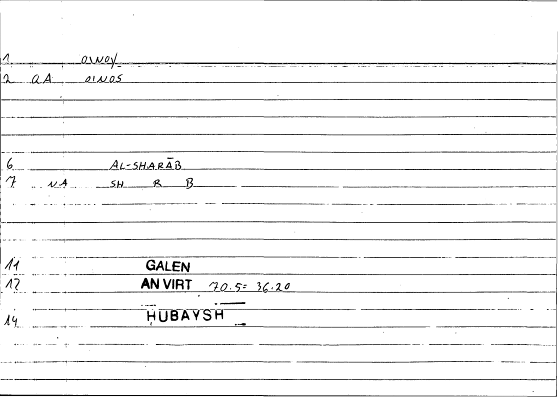 1 OINOY
2 QA OINOS
6 AL-SHARĀB
7 NA SH R B
11 GALEN
12 AN VIRT 70.5= 36.20
14 HUBAYSH